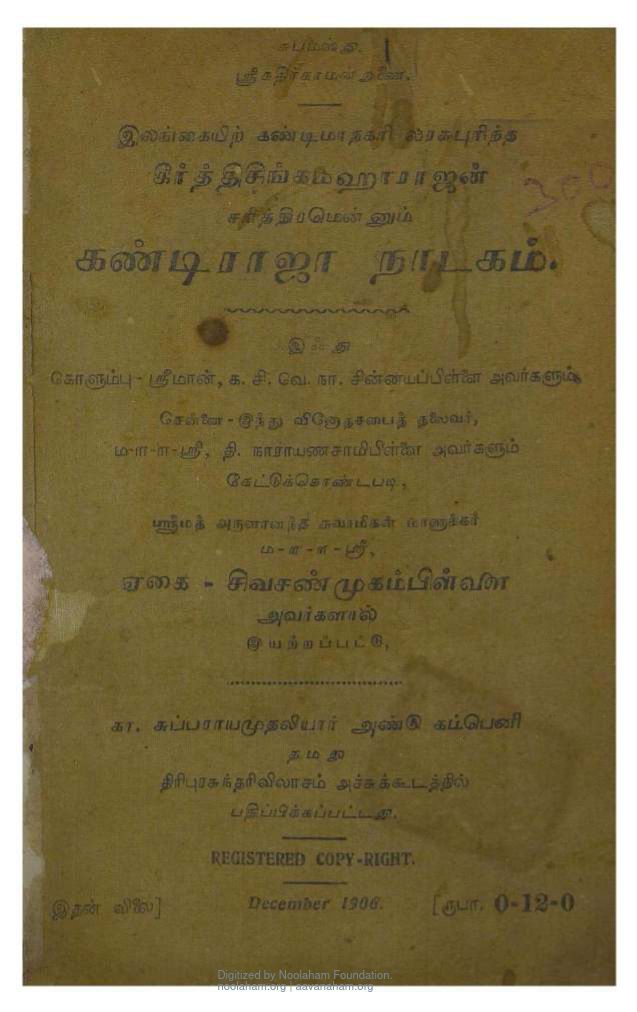 சுபமஸ்து.
ஸ்ரீகதிர்காமன் துணை.
இலங்கையிற் கண்டிமாநகரி லரசுபுரிந்த
கீர்த்திசிங்கம்ஹாராஜன்
சரித்திரமென்னும்
கண்டிராஜா நாடகம்.
இஃது
கோளும்பு - ஸ்ரீமான், க. சி. வெ. நா. சின்னயப்பிள்ளை அவர்களும்
சென்னை - இந்து விநோதசபைத் தலைவர்,
ம-ா-ா-ஸ்ரீ, தி. நாராயணசாமிபிள்ளை அவர்களும்
கேட்டுக்கொண்டபடி,
ஸ்ரீமத் அருளானந்த சுவாமிகள் மாணுக்கர்
ம - ா - ா - ஸ்ரீ,
ஏகை - சிவசண்முகம்பிள்ளை
அவர்களால்
இயற்றப்பட்டு,
கா. சுப்பராயமுதலியார் அண்டு கம்பெனி
தமது
திரிபுரசுந்தரிவிலாசம் அச்சுக்கூடத்தில்
பதிப்பிக்கப்பட்டது.
REGISTERED COPY-RIGHT.
இதன் விலை] December 1906. [ரூபா. 0-12-0
Digitized by Noolaham Foundation.
noolaham.org | aavanaham.org